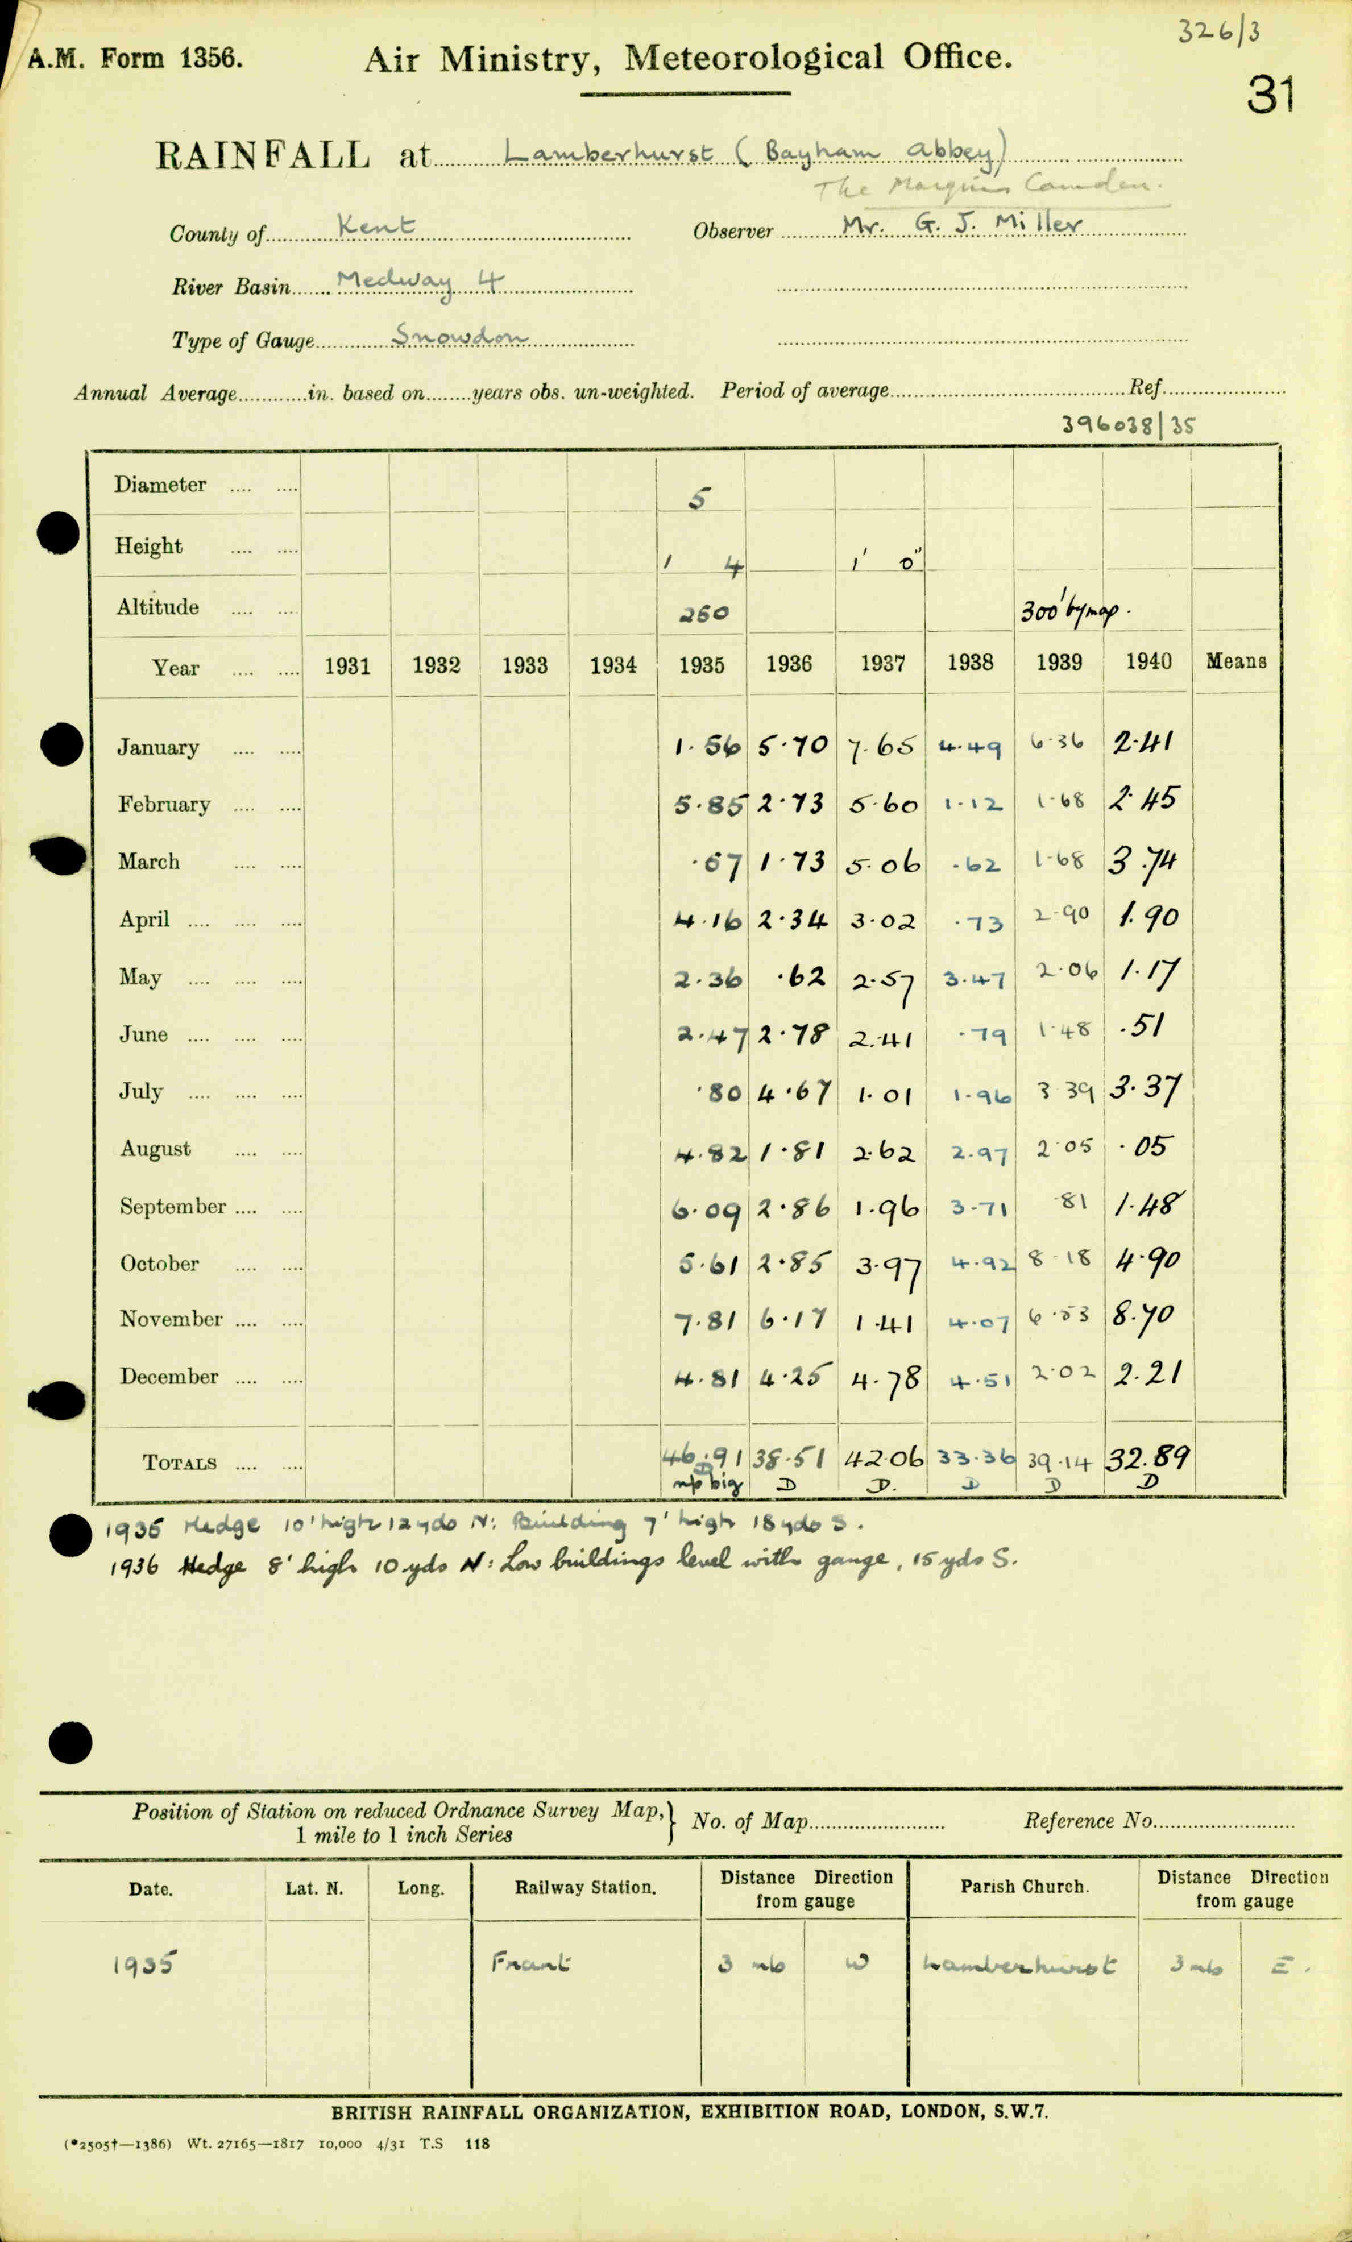 326/3
A.M. Form 1356. Air Ministry, Meteorological Office.
31
RAINFALL at Lamberhurst (Bayham Abbey)
The Marquis Camden.
County of Kent Observer Mr. G. J. Miller
River Basin Medway 4
Type of Gauge Snowdon
Annual Average in. based on years obs. un-weighted. Period of average Ref.
396038/35
Diameter 5
Height 1 4 1' 0"
Altitude 250 300' by map.
Year 1931 1932 1933 1934 1935 1936 1937 1938 1939 1940 Means
January 1.56 5.70 7.65 4.49 6.36 2.41
February 5.85 2.73 5.60 1.12 1.68 2.45
March .57 1.73 5.06 .62 1.68 3.74
April 4.16 2.34 3.02 .73 2.90 1.90
May 2.36 .62 2.57 3.47 2.06 1.17
June 2.47 2.78 2.41 .79 1.48 .51
July .80 4.67 1.01 1.96 3.39 3.37
August 4.82 1.81 2.62 2.97 2.05 .05
September 6.09 2.86 1.96 3.71 .81 1.48
October 5.61 2.85 3.97 4.92 8.18 4.90
November 7.81 6.17 1.41 4.07 6.53 8.70
December 4.81 4.25 4.78 4.51 2.02 2.21
TOTALS 46.91 38.51 42.06 33.36 39.14 32.89
D big D D. D D D
1935 Hedge 10' high 12 yds N: Building 7' high 18 yds S.
1936 Hedge 8' high 10 yds N: Low buildings level with gauge, 15 yds S.
Position of Station on reduced Ordnance Survey Map, } No. of Map Reference No.
1 mile to 1 inch Series
Date. Lat. N. Long. Railway Station. Distance Direction from gauge Parish Church. Distance Direction from gauge
1935 Frant 3 mls W Lamberhurst 3 mls E.
BRITISH RAINFALL ORGANIZATION, EXHIBITION ROAD, LONDON, S.W.7.
(*2505†—1386) Wt. 27165—1817 10,000 4/31 T.S 118